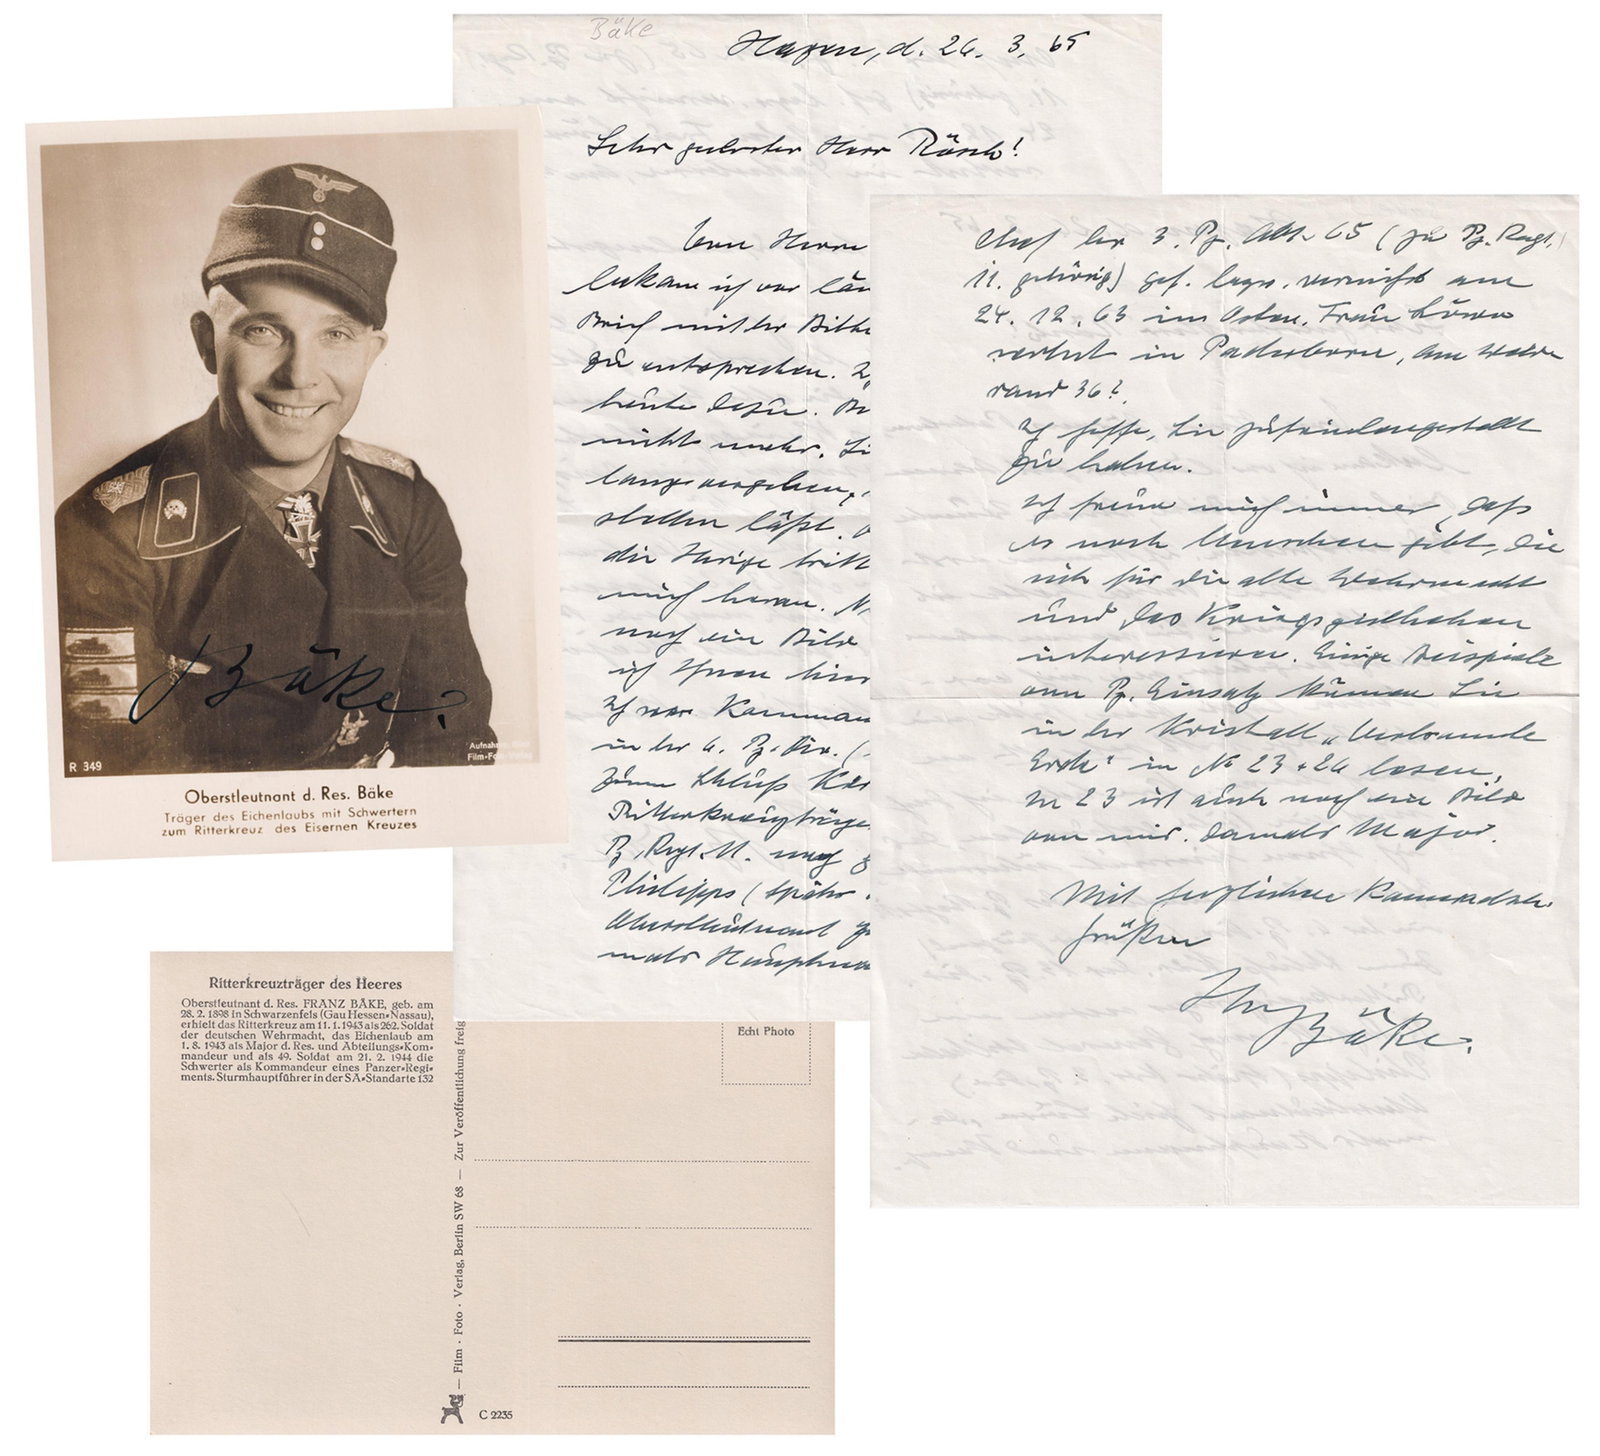 Bäke
Hagen, d. 26. 3. 65
Sehr geehrter Herr Rösch!
Vom Herrn
bekam ich vor län
Brief mit der Bitte
zu entsprechen.
heute dazu.
nicht mehr. Si
lange vergeben,
stellen läßt.
die Hilfe tritt
mich heran.
noch ein Bild
ich Ihnen hier
Ich war Komman
in der 6. Pz. Div. (
zum Schluß
Ritterkreuzträge
Pz. Regt. 11. noch
Philipps (später
Oberstleutnant
mals Hauptma
Chef der 3. Pz. Abt. 65 (zu Pz. Regt.
11. gehörig) gef. bezw. vermißt am
24. 12. 43 im Osten. Frau Löwe
wohnt in Paderborn, Am
rand 36?
Ich hoffe, Sie zufriedengestellt
zu haben.
Ich freue mich immer, daß
es noch Menschen gibt, die
sich für die alte Wehrmacht
und das Kriegsgeschehen
interessieren. Einige Beispiele
vom Pz. Einsatz können Sie
in der Kristall „Verbrannte
Erde" in No 23 + 24 lesen,
In 23 ist auch noch ein Bild
von mir. Damals Major.
Mit herzlichen Kameradsch.
grüßen
Ihr
Bäke.
Bäke.
R 349
Aufnahme
Film-Fo
Oberstleutnant d. Res. Bäke
Träger des Eichenlaubs mit Schwertern
zum Ritterkreuz des Eisernen Kreuzes
Ritterkreuzträger des Heeres
Oberstleutnant d. Res. FRANZ BÄKE, geb. am
28. 2. 1898 in Schwarzenfels (Gau Hessen-Nassau),
erhielt das Ritterkreuz am 11. 1. 1943 als 262. Soldat
der deutschen Wehrmacht, das Eichenlaub am
1. 8. 1943 als Major d. Res. und Abteilungs-Kom-
mandeur und als 49. Soldat am 21. 2. 1944 die
Schwerter als Kommandeur eines Panzer-Regi-
ments. Sturmhauptführer in der SA-Standarte 132
— Film · Foto · Verlag, Berlin SW 68 — Zur Veröffentlichung freig
Echt Photo
C 2235